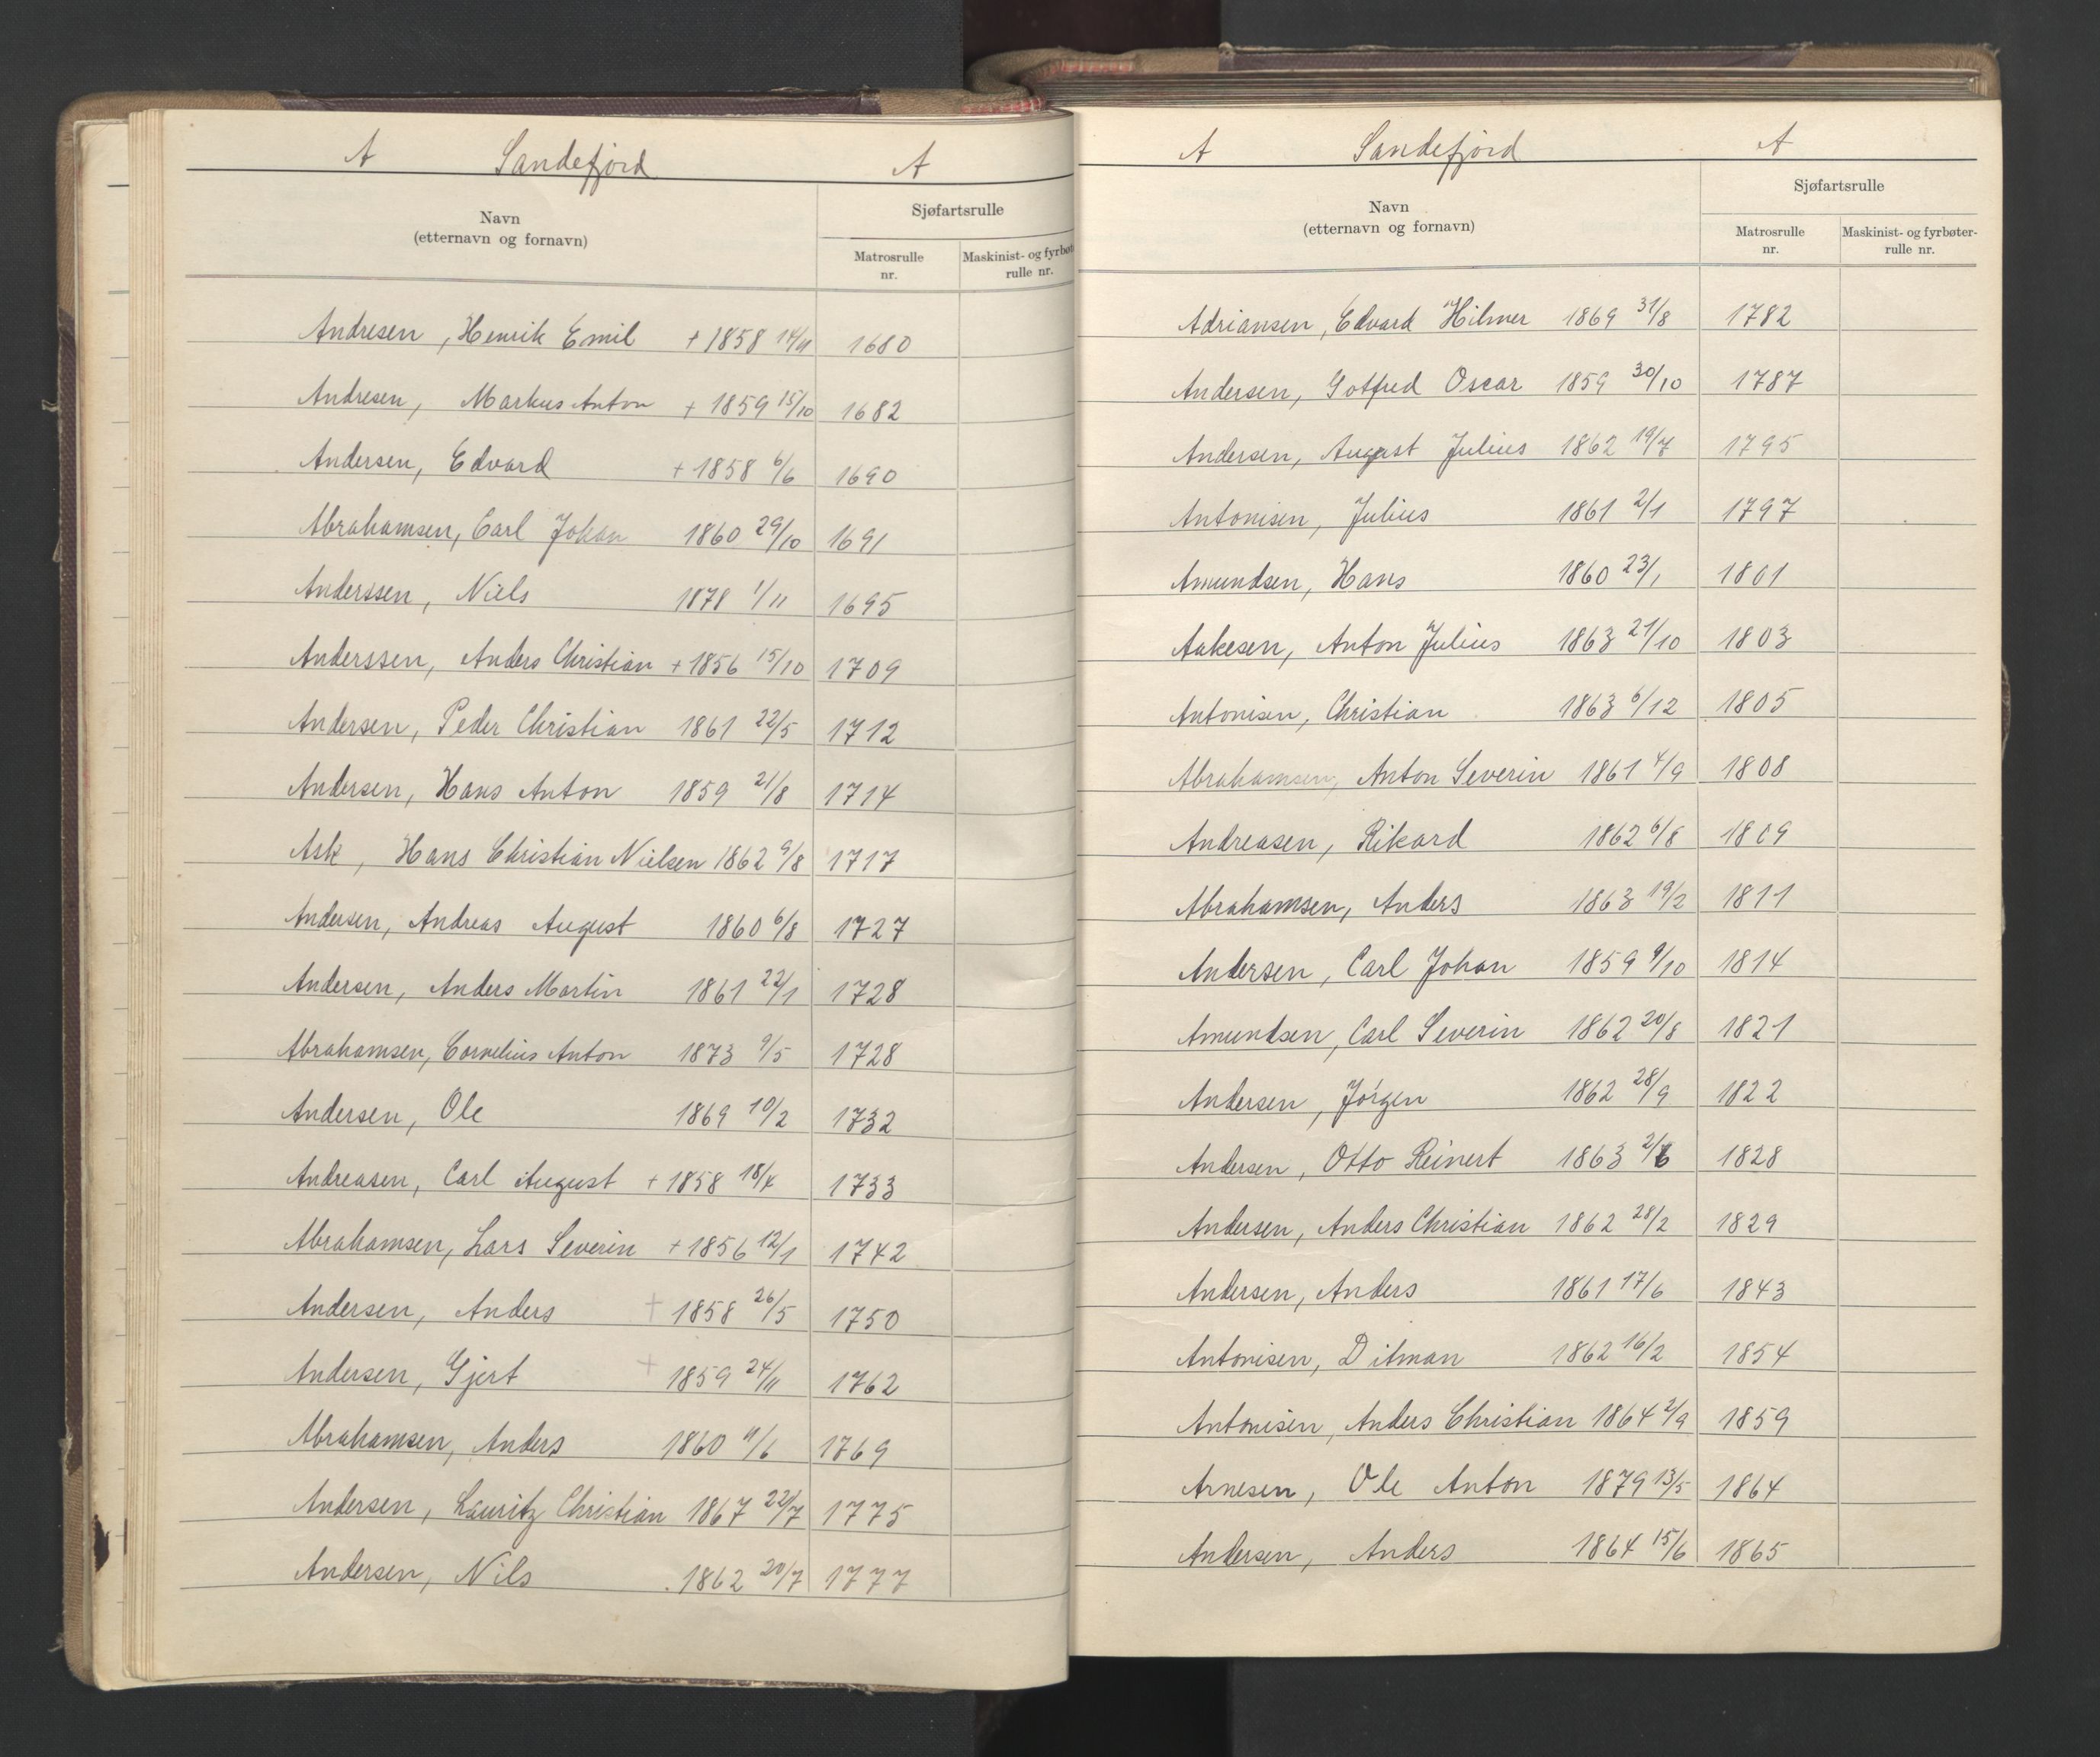 A Sandefjord A
Navn
(etternavn og fornavn)
Sjøfartsrulle
Matrosrulle
nr.
Maskinist- og fyrbøt
rulle nr.
Andresen, Henrik Emil + 1858 14/11 1680
Andresen, Markus Anton + 1859 15/10 1682
Andersen, Edvard + 1858 6/6 1690
Abrahamsen, Carl Johan 1860 29/10 1691
Anderssen, Niels 1878 1/11 1695
Anderssen, Anders Christian + 1856 15/10 1709
Andersen, Peder Christian 1861 22/5 1712
Andersen, Hans Anton 1859 21/8 1714
Ask, Hans Christian Nielsen 1862 9/8 1717
Andersen, Andreas August 1860 6/8 1727
Andersen, Anders Martin 1861 22/1 1728
Abrahamsen, Cornelius Anton 1873 9/5 1728
Andersen, Ole 1869 10/2 1732
Andreasen, Carl August + 1858 18/4 1733
Abrahamsen, Lars Severin + 1856 12/1 1742
Andersen, Anders + 1858 26/5 1750
Andersen, Gjert + 1859 24/11 1762
Abrahamsen, Anders 1860 11/6 1769
Andersen, Lauritz Christian 1867 22/7 1775
Andersen, Nils 1862 20/7 1777
A Sandefjord A
Navn
(etternavn og fornavn)
Sjøfartsrulle
Matrosrulle
nr.
Maskinist- og fyrbøter-
rulle nr.
Adriansen, Edvard Hilmer 1869 31/8 1782
Andersen, Gotfred Oscar 1859 30/10 1787
Andersen, August Julius 1862 19/7 1795
Antonisen, Julius 1861 2/1 1797
Amundsen, Hans 1860 23/1 1801
Aakesen, Anton Julius 1863 21/10 1803
Antonisen, Christian 1863 6/12 1805
Abrahamsen, Anton Severin 1861 4/9 1808
Andreasen, Rikard 1862 6/8 1809
Abrahamsen, Anders 1863 19/2 1811
Andersen, Carl Johan 1859 9/10 1814
Amundsen, Carl Severin 1862 20/8 1821
Andersen, Jørgen 1862 28/9 1822
Andersen, Otto Reinert 1863 2/6 1828
Andersen, Anders Christian 1862 28/2 1829
Andersen, Anders 1861 17/6 1843
Antonisen, Ditman 1862 16/2 1854
Antonisen, Anders Christian 1864 2/9 1859
Arnesen, Ole Anton 1879 13/5 1864
Andersen, Anders 1864 15/6 1865